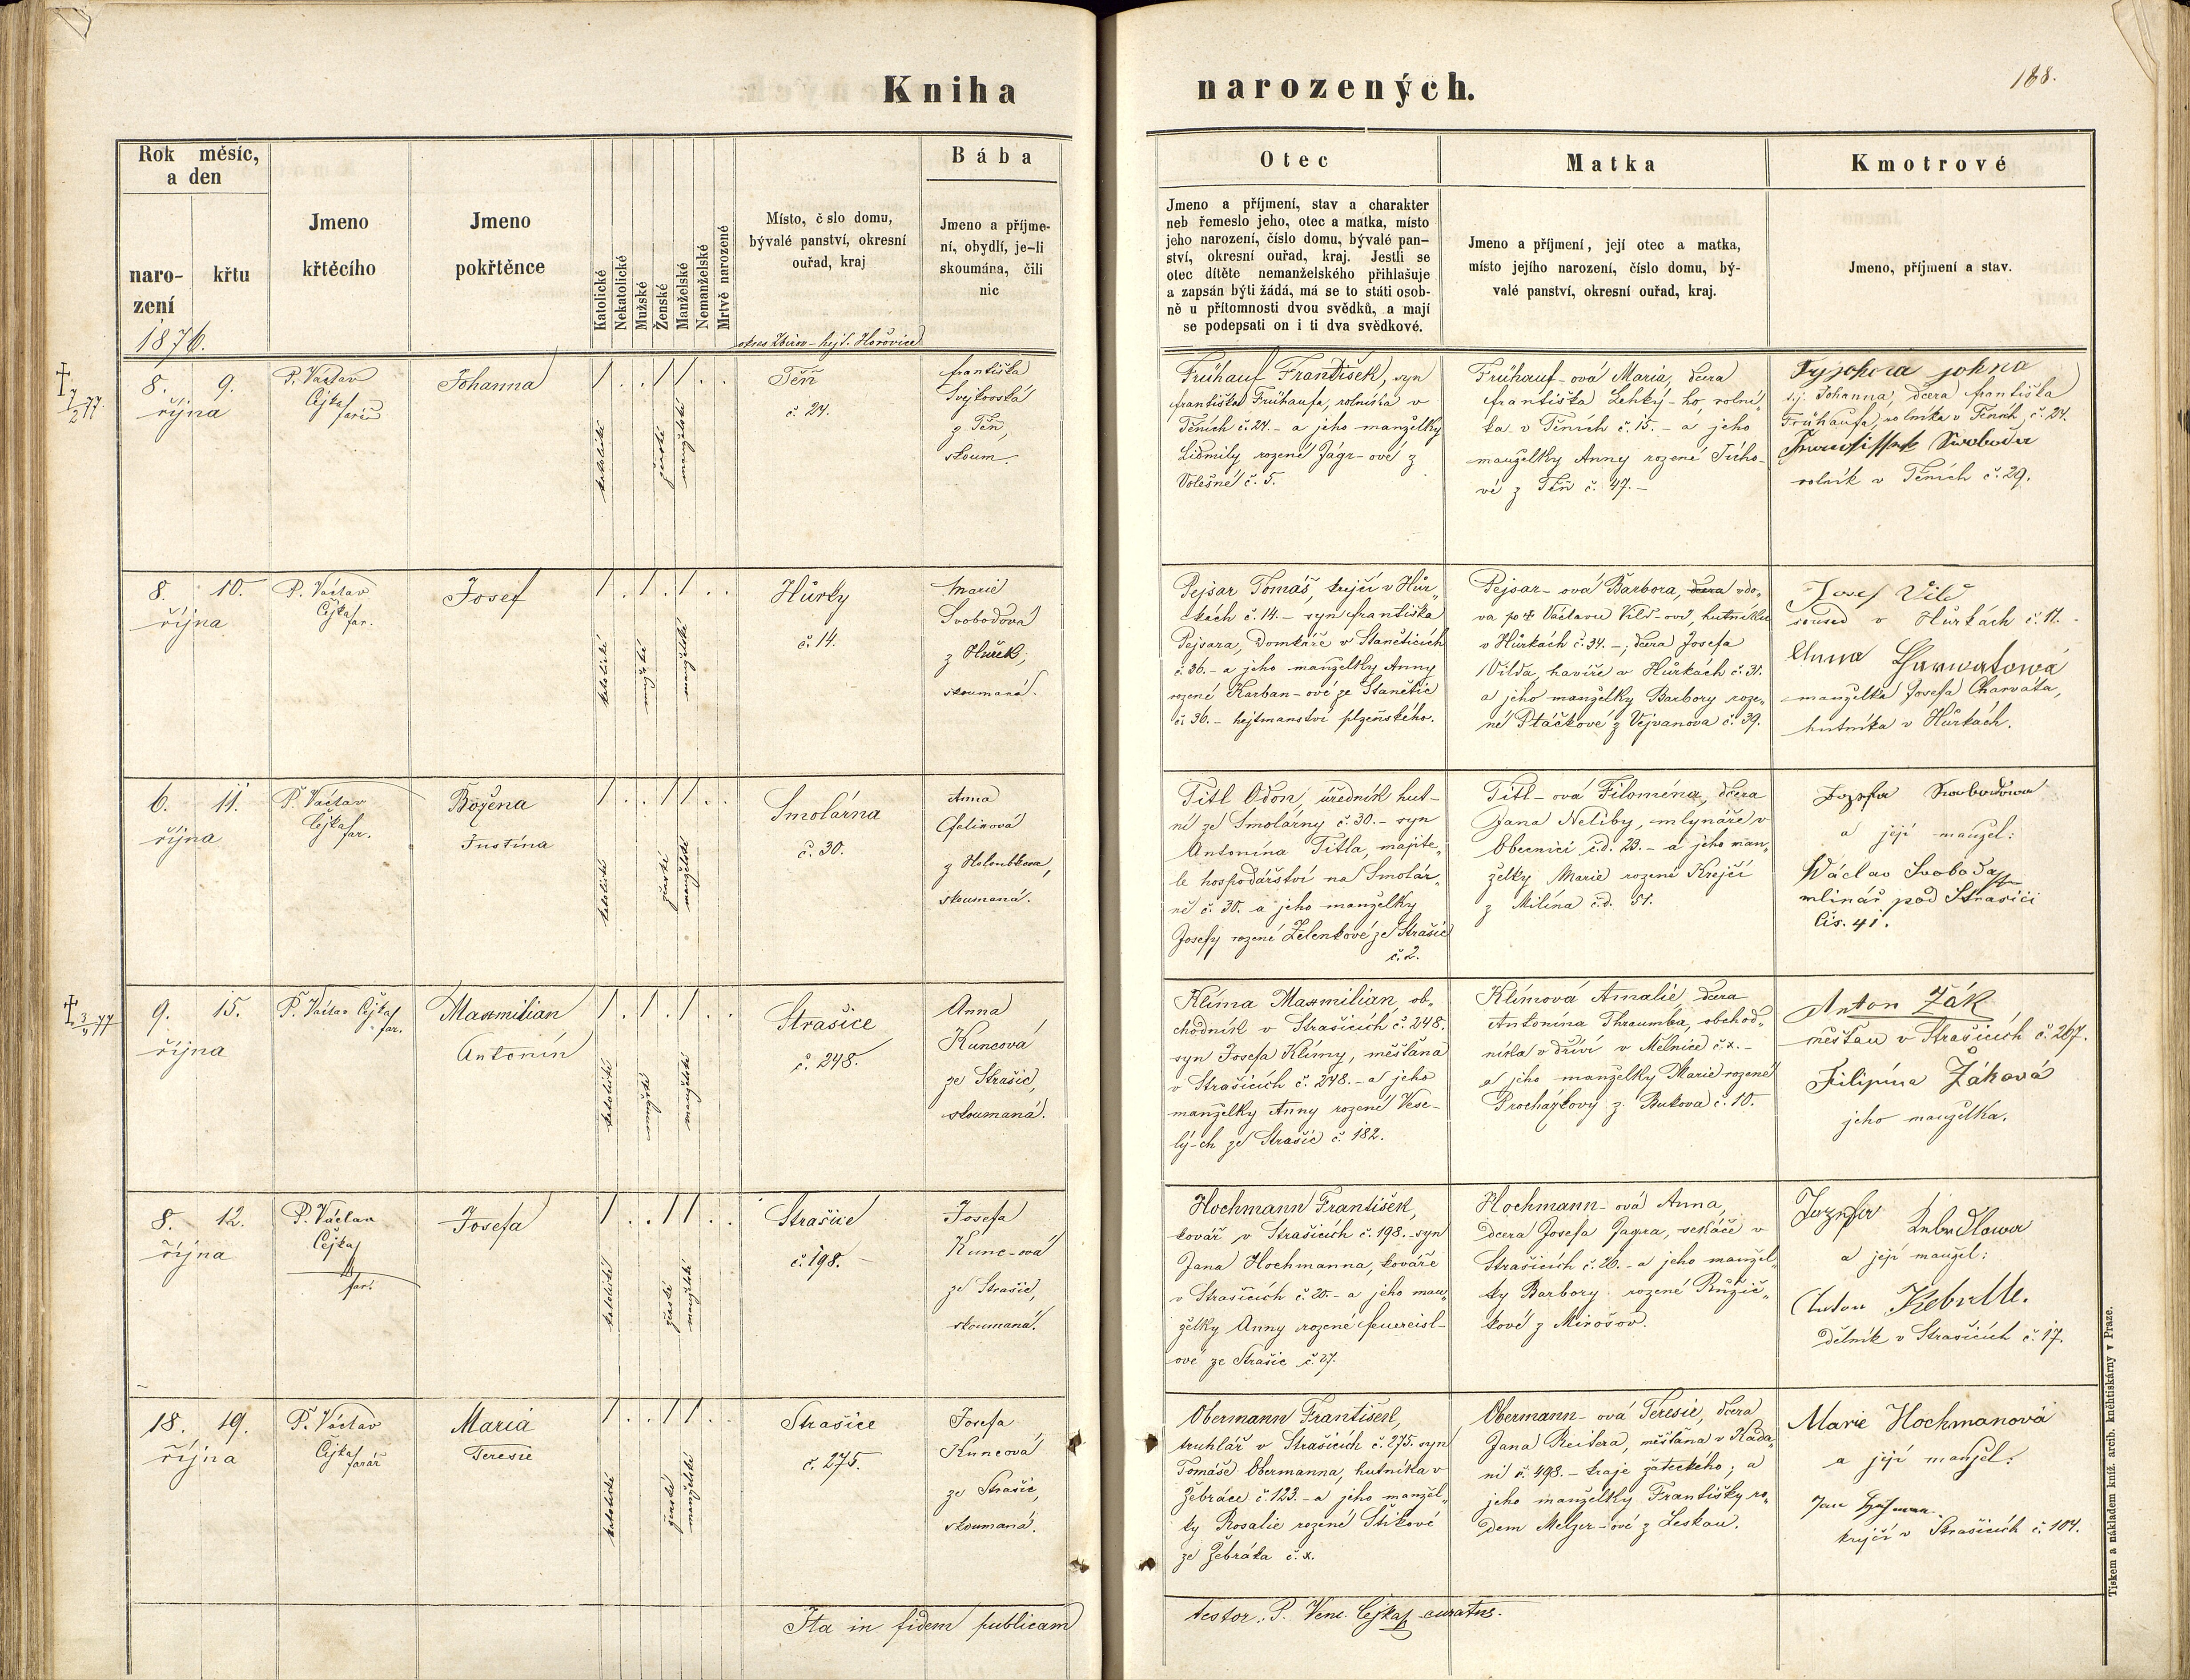 Kniha narozených.
188.
Rok měsíc,
a den
naro-
zení
křtu
Jmeno
křtěcího
Jmeno
pokřtěnce
Katolické
Nekatolické
Mužské
Ženské
Manželské
Nemanželské
Mrtvě narozené
Místo, č slo domu,
bývalé panství, okresní
ouřad, kraj
Bába
Jmeno a příjme-
ní, obydlí, je-li
skoumána, čili
nic
Otec
Jmeno a příjmení, stav a charakter
neb řemeslo jeho, otec a matka, místo
jeho narození, číslo domu, bývalé pan-
ství, okresní ouřad, kraj. Jestli se
otec dítěte nemanželského přihlašuje
a zapsán býti žádá, má se to státi osob-
ně u přítomnosti dvou svědků, a mají
se podepsati on i ti dva svědkové.
Matka
Jmeno a příjmení, její otec a matka,
místo jejího narození, číslo domu, bý-
valé panství, okresní ouřad, kraj.
Kmotrové
Jmeno, příjmení a stav.
1876.
okres Zbirov - hejt. Hořovice
† 7/2 77.
8. 9.
října
P. Václav
Cejka
farář
Johanna
1 . . 1 1 . .
katolické
ženské
manželské
Těň
č. 24.
Františka
Svejkovská
z Těň,
skoum.
Frühauf František, syn
Františka Frühaufa, rolníka v
Těních č. 24. - a jeho manželky
Lidmily rozené Jágr-ové z
Volešné č. 5.
Frühauf-ová Maria, dcera
Františka Lehký-ho, rolní-
ka v Těních č. 15. - a jeho
manželky Anny rozené
vé z Těň č. 47. -
s.j. Johanna, dcera Františka
Frühaufa, rolníka v Těních, č. 24.
Swoboda
rolník v Těních č. 29.
8. 10.
října
P. Václav
Cejka
far.
Josef
1 . 1 . 1 . .
katolické
mužské
manželské
Hůrky
č. 14.
Marie
Svobodová
z Hůrek,
skoumaná.
Pejsar Tomáš, krejčí v Hůr-
kách č. 14. - syn Františka
Pejsara, domkáře v Stančticích
č. 36. - a jeho manželky Anny
rozené Karban-ové ze Stanětic
č. 36. - hejtmanství plzeňského.
Pejsar-ová Barbora, dcera vdo-
va po † Václavu Vild-ovi, hutníku
v Hůrkách č. 34. -, dcera Josefa
Vilda, havíře v Hůrkách č. 31.
a jeho manželky Barbory roze-
né Ptáčkové z Vejvanova č. 39.
Josef Vild
soused v Hůrkách č. 11. -
Anna Harwatowá
manželka Josefa Charváta,
hutníka v Hůrkách.
6. 11.
října
P. Václav
Cejka
far.
Božena
Justina
1 . . 1 1 . .
katolické
ženské
manželské
Smolárna
č. 30.
Anna
Felixová
z Holoubkova,
skoumaná.
Titl Odon, úředník hut-
ní ze Smolárny č. 30. - syn
Antonína Titla, majite-
le hospodářství na Smolár-
ně č. 30. a jeho manželky
Josefy rozené Zelenkové ze Strašic
č. 2.
Titl-ová Filoména, dcera
Jana Neliby, mlynáře v
Obecnici č.d. 23. - a jeho man-
želky Marie rozené Krejčí
z Milína č.d. 51.
Jozefa Swobodowa
a její manžel:
Wáclav Svoboda
mlinář pod Strašici
čis. 41.
† 3/5 77
9. 15.
října
P. Václav Cejka
far.
Maxmilian
Antonín
1 . 1 . 1 . .
katolické
mužské
manželské
Strašice
č. 248.
Anna
Kuncová
ze Strašic,
skoumaná.
Klíma Maxmilian, ob-
chodník v Strašicích č. 248.
syn Josefa Klímy, měšťana
v Strašicích č. 248. - a jeho
manželky Anny rozené Vese-
lý-ch ze Strašic č. 182.
Klímová Amalie, dcera
Antonína Thraumba, obchod-
níka v dříví v Mělníce č. x. -
a jeho manželky Marie rozené
Procházkový z Bukova č. 10.
Anton Žák
měšťan v Strašicích č. 267.
Filipína Žáková
jeho manželka.
8. 12.
října
P. Václav
Cejka
far.
Josefa
1 . . 1 1 . .
katolické
ženské
manželské
Strašice
č. 198. -
Josefa
Kunc-ová
ze Strašic,
skoumaná.
Hochmann František,
kovář v Strašicích č. 198. - syn
Jana Hochmanna, kováře
v Strašicích č. 20. - a jeho man-
želky Anny rozené Feuereisl-
ové ze Strašic č. 27.
Hochmann-ová Anna,
dcera Josefa Jagra, sekáče v
Strašicích č. 26. - a jeho manžel-
ky Barbory rozené Růžič-
kové z Mirošov.
Jozefa
a její manžel:
Anton
dělník v Strašicích č. 17.
18. 19.
října
P. Václav
Cejka
farář
Maria
Teresie
1 . . 1 1 . .
katolické
ženské
manželské
Strašice
č. 275.
Josefa
Kuncová
ze Strašic,
skoumaná.
Obermann František,
truhlář v Strašicích č. 275. syn
Tomáše Obermanna, hutníka v
Žebráce č. 123. - a jeho manžel-
ky Rosalie rozené Štikové
ze Žebráka č. x.
Obermann-ová Teresie, dcera
Jana Reitera, měšťana v Kada-
ni č. 498. - kraje žateckého; a
jeho manželky Františky ro-
dem Melzer-ové z Leskau.
Marie Hochmanová
a její manžel:
Jan
krejčí v Strašicích č. 104.
Ita in fidem publicam
testor. P. Venc. Cejka curatus.
Tiskem a nákladem kníž. arcib. kněhtiskárny v Praze.